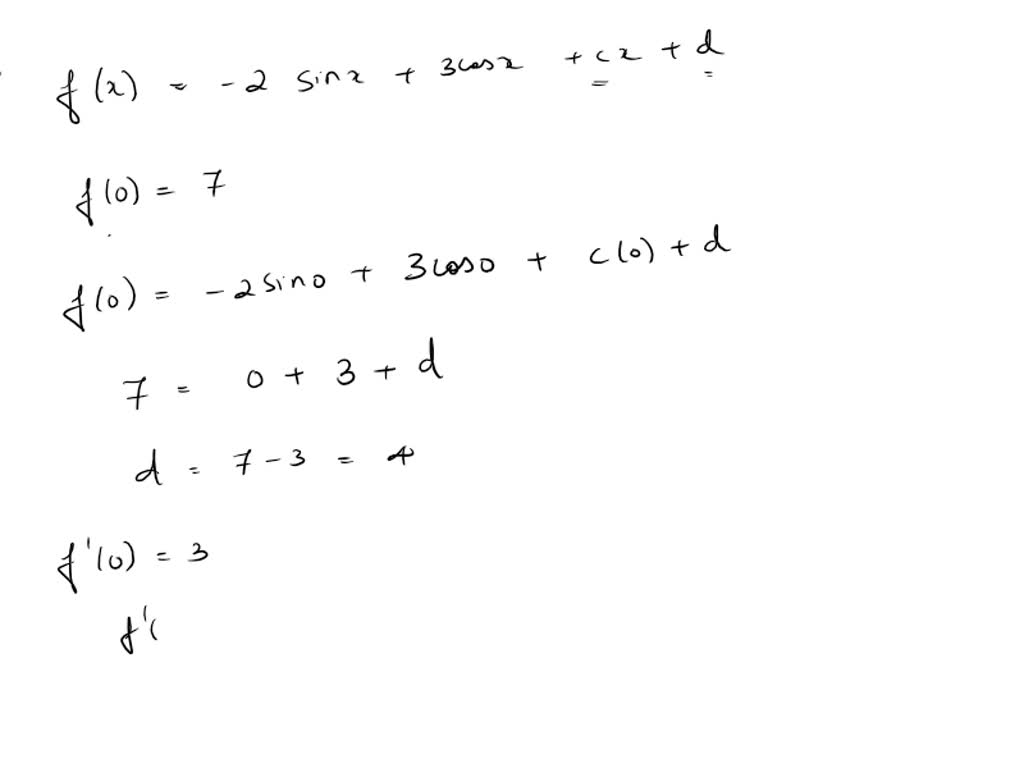 f(x) = -2 sinx + 3cosx + cx + d
f(0) = 7
f(0) = -2sin0 + 3cos0 + c(0) + d
7 = 0 + 3 + d
d = 7-3 = 4
f'(0) = 3
f'(